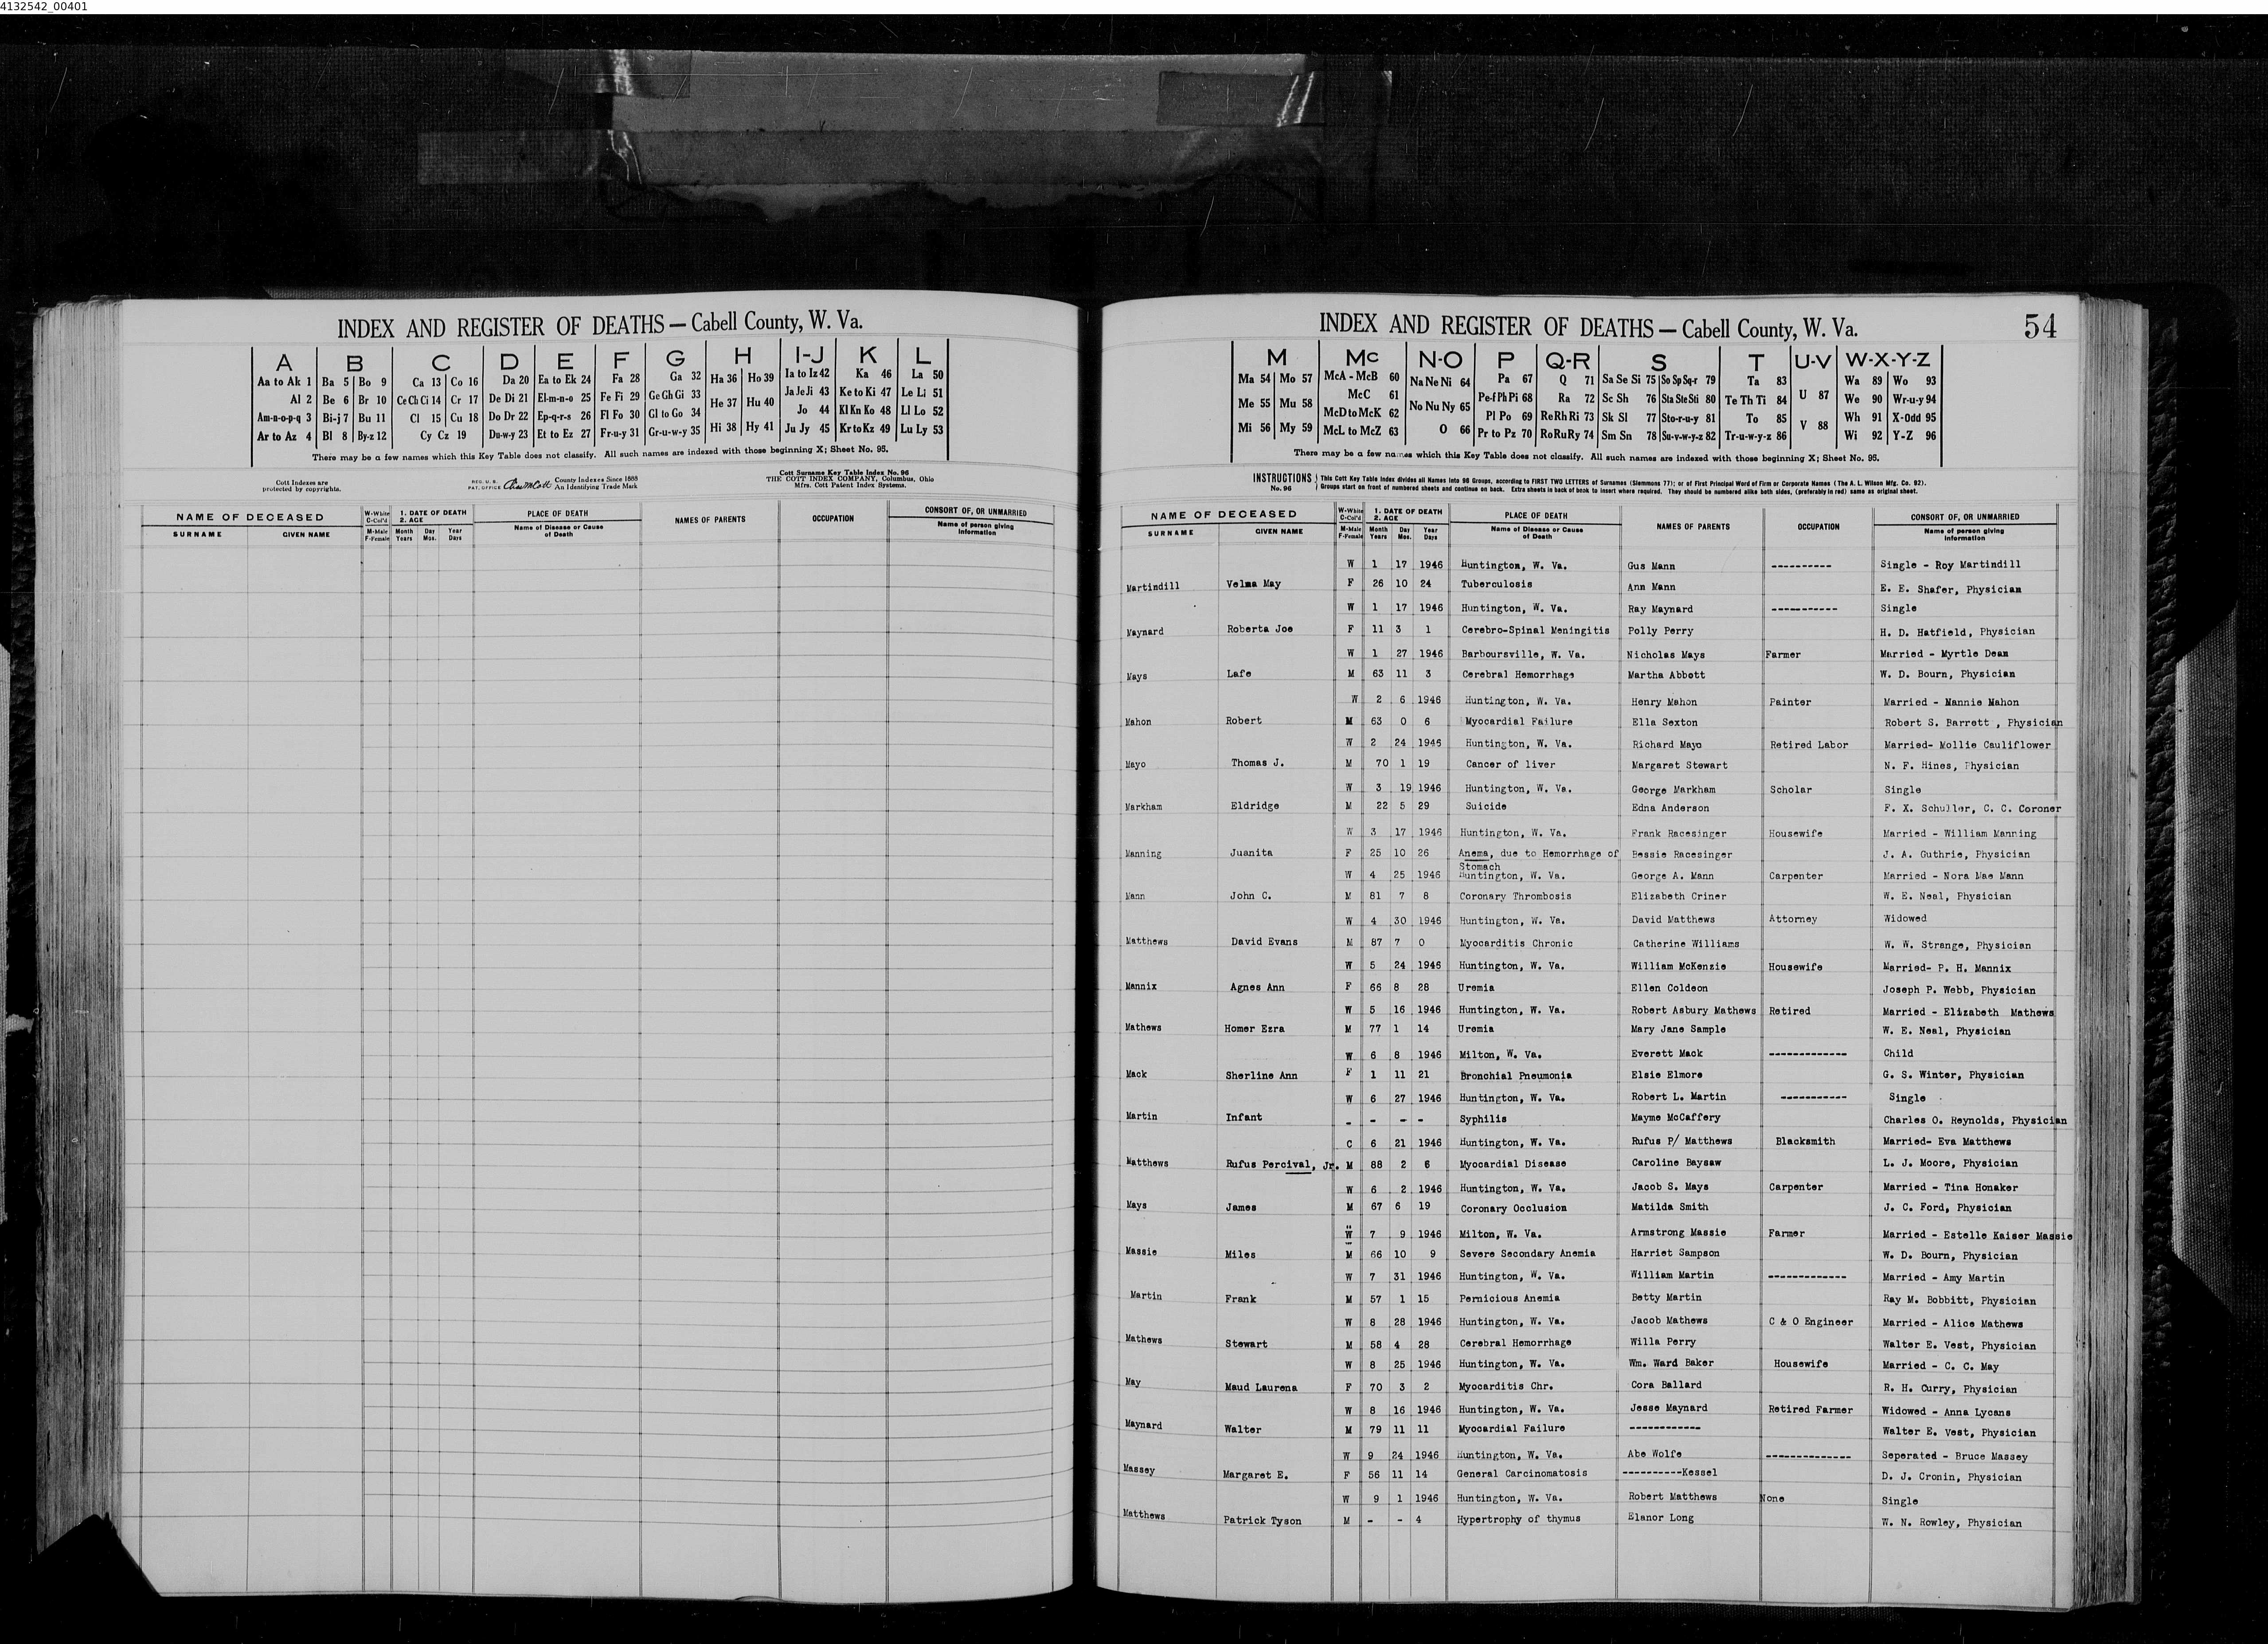 4132542_00401
INDEX AND REGISTER OF DEATHS — Cabell County, W. Va.
A B C D E F G H I-J K L
Aa to Ak 1 Ba 5 Bo 9 Ca 13 Co 16 Da 20 Ea to Ek 24 Fa 28 Ga 32 Ha 36 Ho 39 Ia to Iz 42 Ka 46 La 50
Al 2 Be 6 Br 10 Ce Ch Ci 14 Cr 17 De Di 21 El-m-n-o 25 Fe Fi 29 Ge Gh Gi 33 He 37 Hu 40 Ja Je Ji 43 Ke to Ki 47 Le Li 51
Am-n-o-p-q 3 Bi-j 7 Bu 11 Cl 15 Cu 18 Do Dr 22 Ep-q-r-s 26 Fl Fo 30 Gl to Go 34 Jo 44 Kl Kn Ko 48 Ll Lo 52
Ar to Az 4 Bl 8 By-z 12 Cy Cz 19 Du-w-y 23 Et to Ez 27 Fr-u-y 31 Gr-u-w-y 35 Hi 38 Hy 41 Ju Jy 45 Kr to Kz 49 Lu Ly 53
There may be a few names which this Key Table does not classify. All such names are indexed with those beginning X; Sheet No. 95.
Cott Indexes are protected by copyrights.
REG. U.S. PAT. OFFICE Chas M Cott County Indexes Since 1888 An Identifying Trade Mark
Cott Surname Key Table Index No. 96
THE COTT INDEX COMPANY, Columbus, Ohio
Mfrs. Cott Patent Index Systems.
NAME OF DECEASED W-White C-Col'd 1. DATE OF DEATH 2. AGE PLACE OF DEATH NAMES OF PARENTS OCCUPATION CONSORT OF, OR UNMARRIED
SURNAME GIVEN NAME M-Male F-Female Month Years Day Mos. Year Days Name of Disease or Cause of Death Name of person giving Information
INDEX AND REGISTER OF DEATHS — Cabell County, W. Va. 54
M Mc N-O P Q-R S T U-V W-X-Y-Z
Ma 54 Mo 57 McA - McB 60 Na Ne Ni 64 Pa 67 Q 71 Sa Se Si 75 So Sp Sq-r 79 Ta 83 U 87 Wa 89 Wo 93
Me 55 Mu 58 McC 61 No Nu Ny 65 Pe-f Ph Pi 68 Ra 72 Sc Sh 76 Sta Ste Sti 80 Te Th Ti 84 We 90 Wr-u-y 94
McD to McK 62 Pl Po 69 Re Rh Ri 73 Sk Sl 77 Sto-r-u-y 81 To 85 V 88 Wh 91 X-Odd 95
Mi 56 My 59 McL to McZ 63 O 66 Pr to Pz 70 Ro Ru Ry 74 Sm Sn 78 Su-v-w-y-z 82 Tr-u-w-y-z 86 Wi 92 Y-Z 96
There may be a few names which this Key Table does not classify. All such names are indexed with those beginning X; Sheet No. 95.
INSTRUCTIONS No. 96 This Cott Key Table Index divides all Names into 96 Groups, according to FIRST TWO LETTERS of Surnames (Slemmons 77); or of First Principal Word of Firm or Corporate Names (The A. L. Wilson Mfg. Co. 92).
Groups start on front of numbered sheets and continue on back. Extra sheets in back of book to insert where required. They should be numbered alike both sides, (preferably in red) same as original sheet.
NAME OF DECEASED W-White C-Col'd 1. DATE OF DEATH 2. AGE PLACE OF DEATH NAMES OF PARENTS OCCUPATION CONSORT OF, OR UNMARRIED
SURNAME GIVEN NAME M-Male F-Female Month Years Day Mos. Year Days Name of Disease or Cause of Death Name of person giving Information
W 1 17 1946 Huntington, W. Va. Gus Mann ---------- Single - Roy Martindill
Martindill Velma May F 26 10 24 Tuberculosis Ann Mann E. E. Shafer, Physician
W 1 17 1946 Huntington, W. Va. Ray Maynard ----------- Single
Maynard Roberta Joe F 11 3 1 Cerebro-Spinal Meningitis Polly Perry H. D. Hatfield, Physician
W 1 27 1946 Barboursville, W. Va. Nicholas Mays Farmer Married - Myrtle Dean
Mays Lafe M 63 11 3 Cerebral Hemorrhage Martha Abbott W. D. Bourn, Physician
W 2 6 1946 Huntington, W. Va. Henry Mahon Painter Married - Mannie Mahon
Mahon Robert M 63 0 6 Myocardial Failure Ella Sexton Robert S. Barrett , Physician
W 2 24 1946 Huntington, W. Va. Richard Mayo Retired Labor Married- Mollie Cauliflower
Mayo Thomas J. M 70 1 19 Cancer of liver Margaret Stewart N. F. Hines, Physician
W 3 19 1946 Huntington, W. Va. George Markham Scholar Single
Markham Eldridge M 22 5 29 Suicide Edna Anderson F. X. Schuller, C. C. Coroner
W 3 17 1946 Huntington, W. Va. Frank Racesinger Housewife Married - William Manning
Manning Juanita F 25 10 26 Anema, due to Hemorrhage of Stomach Bessie Racesinger J. A. Guthrie, Physician
W 4 25 1946 Huntington, W. Va. George A. Mann Carpenter Married - Nora Mae Mann
Mann John C. M 81 7 8 Coronary Thrombosis Elizabeth Criner W. E. Neal, Physician
W 4 30 1946 Huntington, W. Va. David Matthews Attorney Widowed
Matthews David Evans M 87 7 0 Myocarditis Chronic Catherine Williams W. W. Strange, Physician
W 5 24 1946 Huntington, W. Va. William McKenzie Housewife Married- P. H. Mannix
Mannix Agnes Ann F 66 8 28 Uremia Ellen Coldeon Joseph P. Webb, Physician
W 5 16 1946 Huntington, W. Va. Robert Asbury Mathews Retired Married - Elizabeth Mathews
Mathews Homer Ezra M 77 1 14 Uremia Mary Jane Sample W. E. Neal, Physician
W 6 8 1946 Milton, W. Va. Everett Mack ------------- Child
Mack Sherline Ann F 1 11 21 Bronchial Pneumonia Elsie Elmore G. S. Winter, Physician
W 6 27 1946 Huntington, W. Va. Robert L. Martin ----------- Single
Martin Infant - - - - Syphilis Mayme McCaffery Charles O. Reynolds, Physician
C 6 21 1946 Huntington, W. Va. Rufus P/ Matthews Blacksmith Married- Eva Matthews
Matthews Rufus Percival, Jr. M 88 2 6 Myocardial Disease Caroline Baysaw L. J. Moore, Physician
W 6 2 1946 Huntington, W. Va. Jacob S. Mays Carpenter Married - Tina Honaker
Mays James M 67 6 19 Coronary Occlusion Matilda Smith J. C. Ford, Physician
W 7 9 1946 Milton, W. Va. Armstrong Massie Farmer Married - Estelle Kaiser Massie
Massie Miles M 66 10 9 Severe Secondary Anemia Harriet Sampson W. D. Bourn, Physician
W 7 31 1946 Huntington, W. Va. William Martin ------------- Married - Amy Martin
Martin Frank M 57 1 15 Pernicious Anemia Betty Martin Ray M. Bobbitt, Physician
W 8 28 1946 Huntington, W. Va. Jacob Mathews C & O Engineer Married - Alice Mathews
Mathews Stewart M 58 4 28 Cerebral Hemorrhage Willa Perry Walter E. Vest, Physician
W 8 25 1946 Huntington, W. Va. Wm. Ward Baker Housewife Married - C. C. May
May Maud Laurena F 70 3 2 Myocarditis Chr. Cora Ballard R. H. Curry, Physician
W 8 16 1946 Huntington, W. Va. Jesse Maynard Retired Farmer Widowed - Anna Lycans
Maynard Walter M 79 11 11 Myocardial Failure ------------ Walter E. Vest, Physician
W 9 24 1946 Huntington, W. Va. Abe Wolfe -------------- Seperated - Bruce Massey
Massey Margaret E. F 56 11 14 General Carcinomatosis ----------Kessel D. J. Cronin, Physician
W 9 1 1946 Huntington, W. Va. Robert Matthews None Single
Matthews Patrick Tyson M - - 4 Hypertrophy of thymus Elanor Long W. N. Rowley, Physician